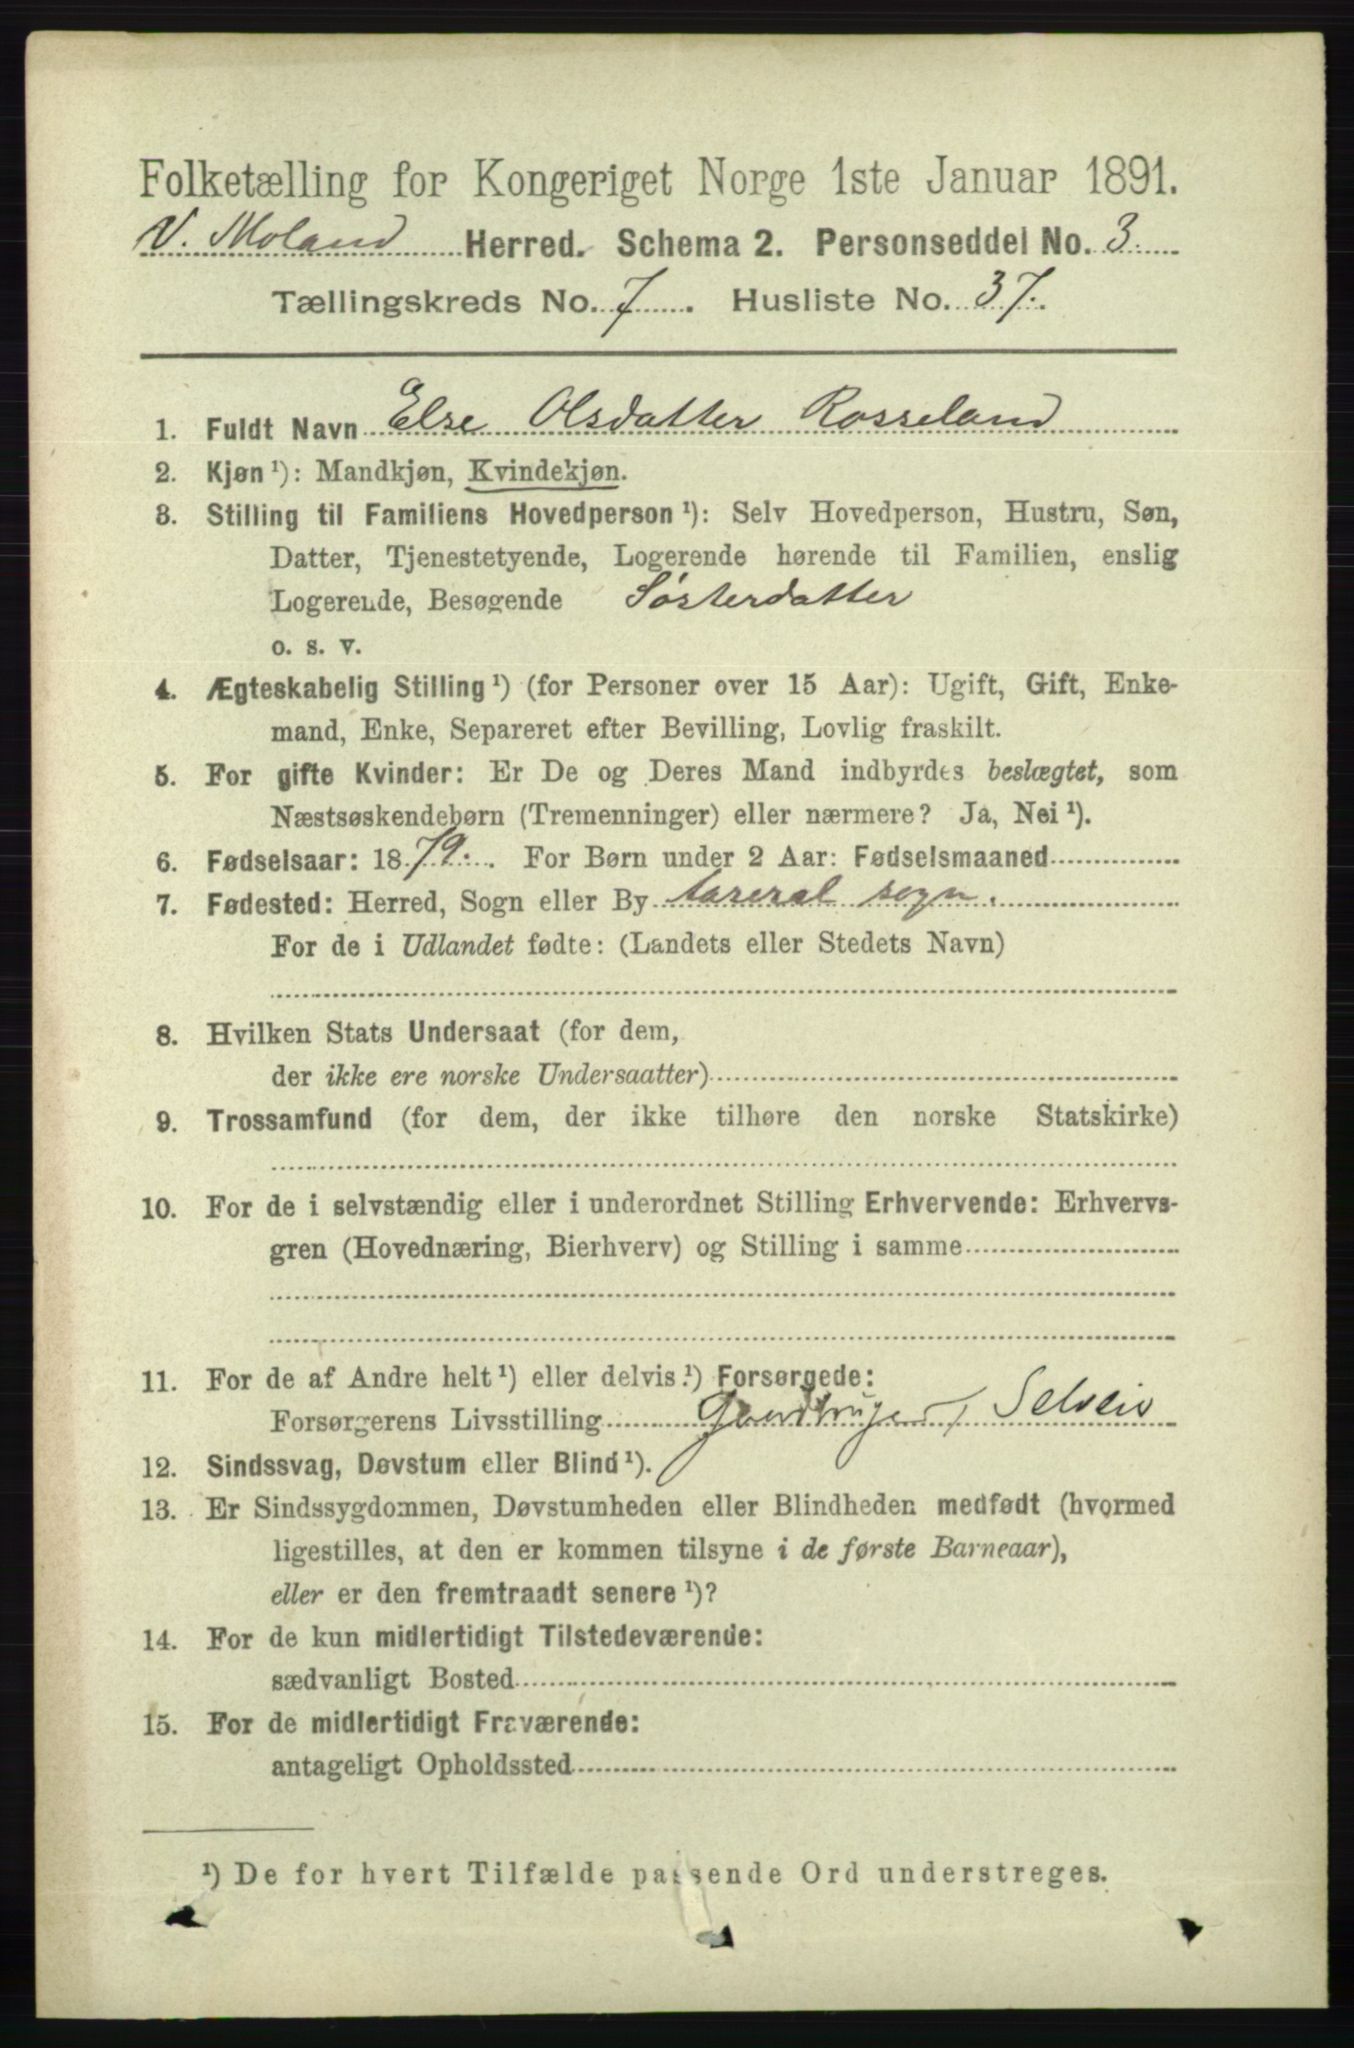 Folketælling for Kongeriget Norge 1ste Januar 1891.
V. Moland Herred. Schema 2. Personseddel No. 3
Tællingskreds No. 7. Husliste No. 37.
1. Fuldt Navn Else Olsdatter Rosseland
2. Kjøn ¹): Mandkjøn, Kvindekjøn.
3. Stilling til Familiens Hovedperson ¹): Selv Hovedperson, Hustru, Søn,
Datter, Tjenestetyende, Logerende hørende til Familien, enslig
Logerende, Besøgende Søsterdatter
o. s. v.
4. Ægteskabelig Stilling ¹) (for Personer over 15 Aar): Ugift, Gift, Enke-
mand, Enke, Separeret efter Bevilling, Lovlig fraskilt.
5. For gifte Kvinder: Er De og Deres Mand indbyrdes beslægtet, som
Næstsøskendebørn (Tremenninger) eller nærmere? Ja, Nei ¹).
6. Fødselsaar: 1879. For Børn under 2 Aar: Fødselsmaaned
7. Fødested: Herred, Sogn eller By sogn.
For de i Udlandet fødte: (Landets eller Stedets Navn)
8. Hvilken Stats Undersaat (for dem,
der ikke ere norske Undersaatter)
9. Trossamfund (for dem, der ikke tilhøre den norske Statskirke)
10. For de i selvstændig eller i underordnet Stilling Erhvervende: Erhvervs-
gren (Hovednæring, Bierhverv) og Stilling i samme
11. For de af Andre helt ¹) eller delvis ¹) Forsørgede:
Forsørgerens Livsstilling Gaardbruger, Selveier
12. Sindssvag, Døvstum eller Blind ¹).
13. Er Sindssygdommen, Døvstumheden eller Blindheden medfødt (hvormed
ligestilles, at den er kommen tilsyne i de første Barneaar),
eller er den fremtraadt senere ¹)?
14. For de kun midlertidigt Tilstedeværende:
sædvanligt Bosted
15. For de midlertidigt Fraværende:
antageligt Opholdssted
¹) De for hvert Tilfælde passende Ord understreges.